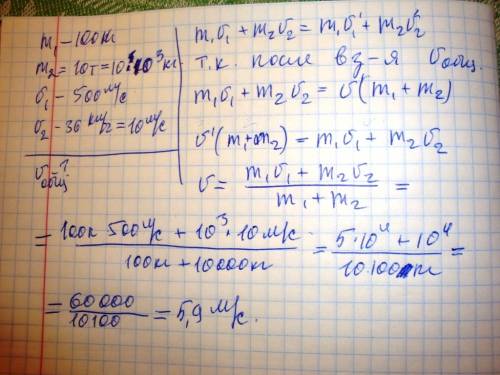 m₁ - 100кг
m₂ = 10т = 10·10³кг
υ₁ - 500 м/с
υ₂ - 36 км/г = 10 м/с
υобщ ?
m₁υ₁ + m₂υ₂ = m₁υ₁' + m₂υ₂'
т.к. после вз-я υобщ.
m₁υ₁ + m₂υ₂ = υ'(m₁ + m₂)
υ'(m₁+m₂) = m₁υ₁ + m₂υ₂
υ = (m₁υ₁ + m₂υ₂) / (m₁ + m₂) =
= (100к 500 м/с + 10³·10 м/с) / (100кг + 10000кг) = (5·10⁴ + 10⁴) / (10.100 кг) =
= 60000 / 10100 = 5,9 м/с.